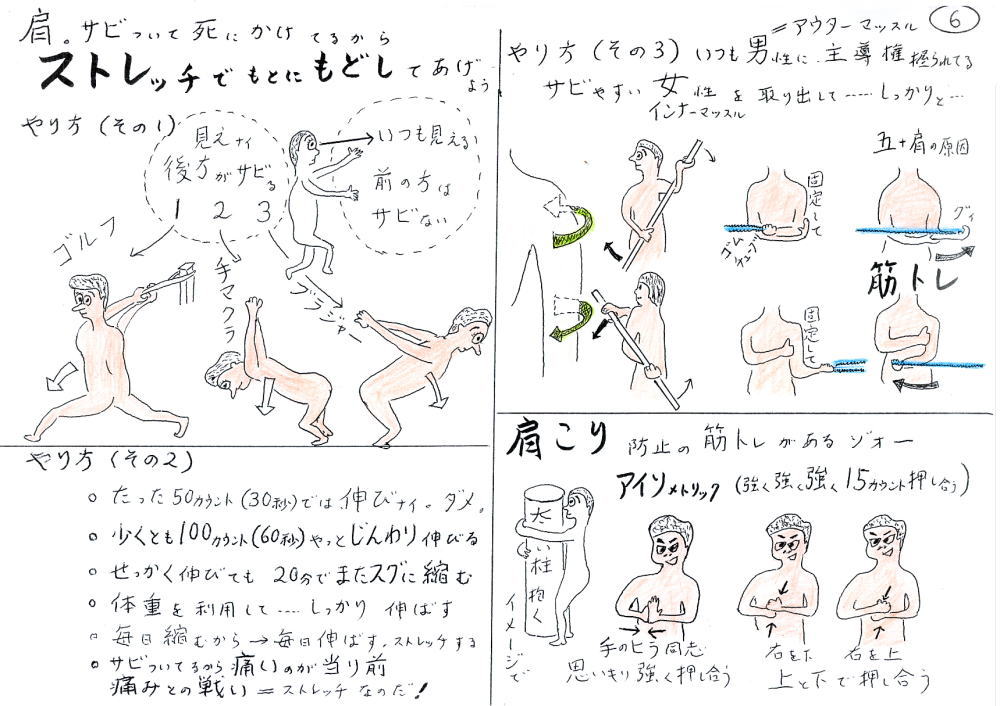 肩。サビついて死にかけてるから
ストレッチでもとにもどしてあげよう
やり方(その1)
見えナイ
後方がサビる
1 2 3
いつも見える
前の方は
サビない
ゴルフ
手マクラ
ブラジャー
やり方(その2)
○ たった50カウント(30秒)では伸びナイ。ダメ。
○ 少くとも100カウント(60秒)やっとじんわり伸びる
○ せっかく伸びても 20分でまたスグに縮む
○ 体重を利用して‥‥しっかり伸ばす
○ 毎日縮むから→毎日伸ばす。ストレッチする
○ サビついてるから痛いのが当り前
痛みとの戦い=ストレッチなのだ!
6
=アウターマッスル
やり方(その3)いつも男性に主導権握られてる
サビやすい女性を取り出して‥‥‥しっかりと‥‥
インナーマッスル
五十肩の原因
固定して
ゴムチューブ
グィ
筋トレ
固定して
肩こり 防止の筋トレがあるジォー
アイソメトリック(強く強く強く15カウント押し合う)
太い柱抱く
イメージで
手のヒラ同志
思いきり強く押し合う
右を下 右を上
上と下で押し合う